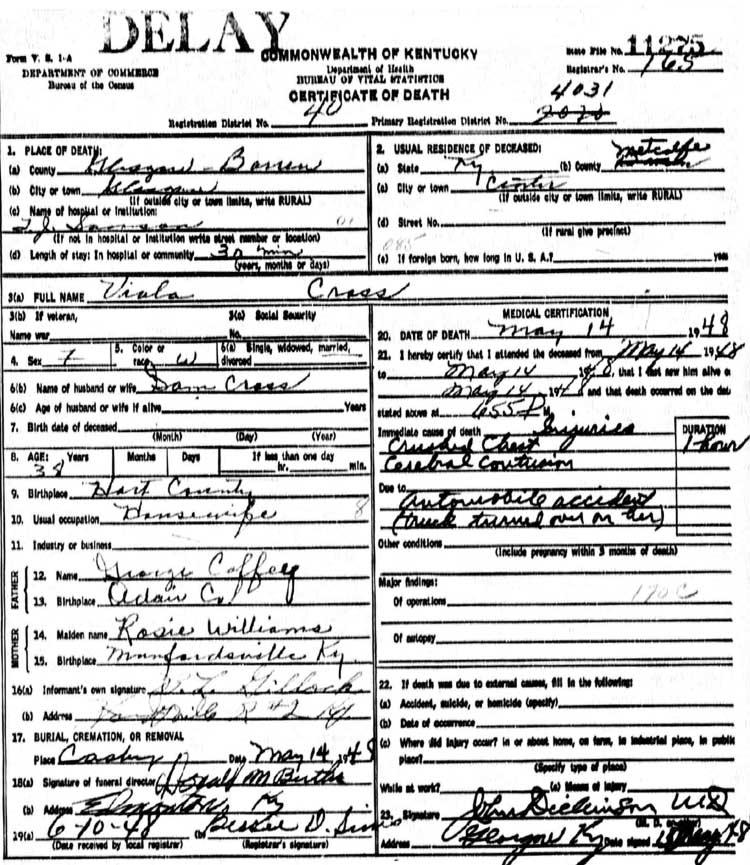 DELAY
Form V. S. 1-A
DEPARTMENT OF COMMERCE
Bureau of the Census
COMMONWEALTH OF KENTUCKY
Department of Health
BUREAU OF VITAL STATISTICS
CERTIFICATE OF DEATH
State File No. 11275
Registrar's No. 165
4031
Registration District No. 40 Primary Registration District No. 7020
1. PLACE OF DEATH:
(a) County Glasgow - Barren
(b) City or town Glasgow
(If outside city or town limits, write RURAL)
(c) Name of hospital or institution:
T J Samson 01
(If not in hospital or institution write street number or location)
(d) Length of stay: In hospital or community 30 min
(years, months or days)
2. USUAL RESIDENCE OF DECEASED:
(a) State Ky (b) County Metcalfe
(c) City or town Center
(If outside city or town limits, write RURAL)
(d) Street No.
(If rural give precinct)
085
(e) If foreign born, how long in U. S. A.? years
3(a) FULL NAME Viola Cross
3(b) If veteran,
Name war
3(c) Social Security
No.
4. Sex F
5. Color or race W
6(a) Single, widowed, married, divorced
6(b) Name of husband or wife Sam Cross
6(c) Age of husband or wife if alive Years
7. Birth date of deceased
(Month) (Day) (Year)
8. AGE: Years Months Days If less than one day
38 hr. min.
9. Birthplace Hart County
10. Usual occupation Housewife 8
11. Industry or business
FATHER
12. Name George Coffey
13. Birthplace Adair Co
MOTHER
14. Maiden name Rosie Williams
15. Birthplace Munfordsville Ky.
16(a) Informant's own signature Gillock
(b) Address R #2 Ky
17. BURIAL, CREMATION, OR REMOVAL
Place Date May 14 1948
18(a) Signature of funeral director Donald M Butler
(b) Address Edmonton Ky
19(a) 6-10-48 (b) Bessie D. Sims
(Date received by local registrar) (Registrar's signature)
MEDICAL CERTIFICATION
20. DATE OF DEATH May 14 1948
21. I hereby certify that I attended the deceased from May 14 1948
to May 14 1948, that I last saw him alive on
May 14 1948 and that death occurred on the date
stated above at 655 P M.
Immediate cause of death Injuries
DURATION
Crushed Chest 1 hour
Cerebral Contusion
Due to
Automobile accident
(truck turned over on her)
Other conditions
(Include pregnancy within 3 months of death)
Major findings:
Of operations 170 C
Of autopsy
22. If death was due to external causes, fill in the following:
(a) Accident, suicide, or homicide (specify)
(b) Date of occurrence
(c) Where did injury occur? in or about home, on farm, in industrial place, in public
place?
(Specify type of place)
While at work? (e) Means of injury
23. Signature John Dickinson MD
(M. D. or other)
Address Glasgow Ky Date signed May 48